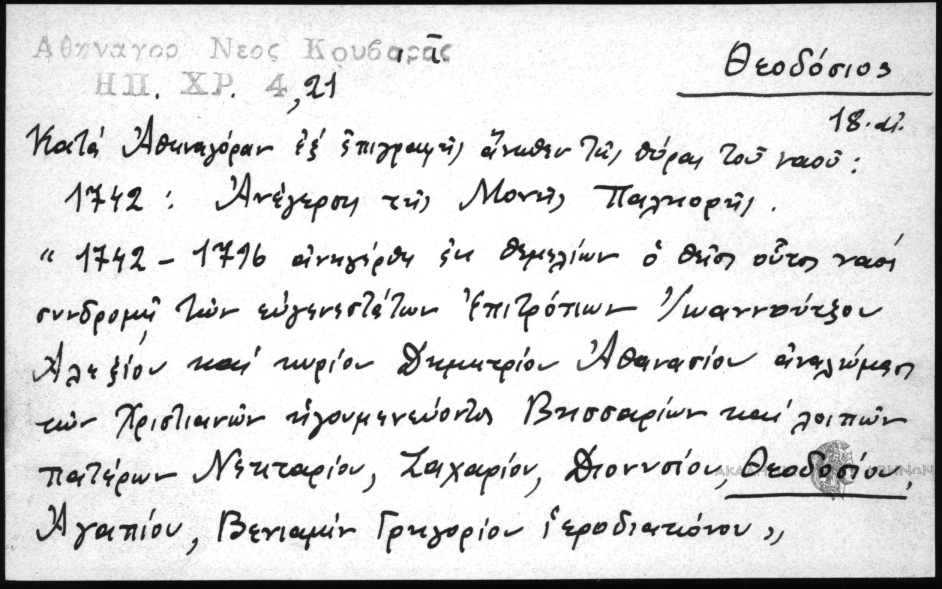 Αθηναγορ Νεος Κουβαρᾶς , ᾱ
Θεοδόσιος
ΗΠ. ΧΡ. 4,21
18. αἰ.
Κατά Ἀθηναγόραν ἐξ ἐπιγραφῆς ἄνωθεν τῆς θύρας τοῦ ναοῦ:
1742 : Ἀνέγερσις τῆς Μονῆς Παλιορῆς.
" 1742 – 1796 ἀνηγέρθη ἐκ θεμελίων ὁ θεῖος οὗτος ναός
συνδρομῇ τῶν εὐγενεστάτων Ἐπιτρόπων Ἰωαννούτζου
Ἀλεξίου καί κυρίου Δημητρίου Ἀθανασίου ἀναλώμασι
τῶν Χριστιανῶν ἡγουμενεύοντος Βησσαρίων καί λοιπῶν
πατέρων Νεκταρίου, Ζαχαρίου, Διονυσίου, Θεοδοσίου,
Ἀγαπίου, Βενιαμίν Γρηγορίου ἱεροδιακόνου "